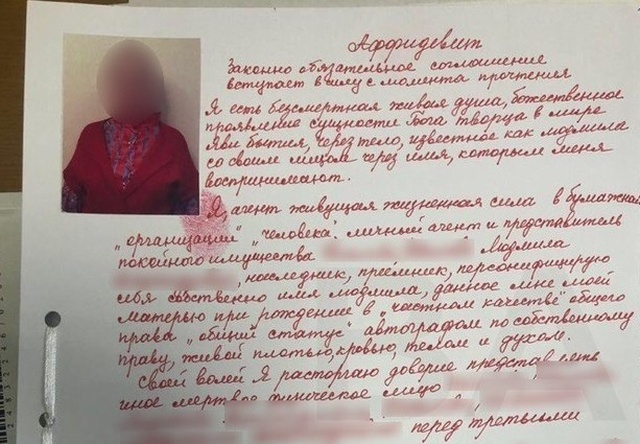 Аффидевит
Законно обязательное соглашение
вступает в силу с момента прочтения
Я есть безсмертная живая душа, божественное
проявление сущности Бога творца в мире
Яви бытия, через тело, известное как людмила
со своим лицом через имя, которым меня
воспринимают.
Я, агент живущая жизненная сила в бумажной
„организации" „человека". личный агент и представитель
покойного имущества Людмила
, наследник, приёмник, персонифицирую
себя собственно имя людмила, данное мне моей
матерью при рождение в „частном качестве" общего
права „общий статус" автографом по собственному
праву, живой плотью, кровью, телом и духом.
Своей волей Я расторгаю доверие представлять
иное мертвое лицо
перед третьими